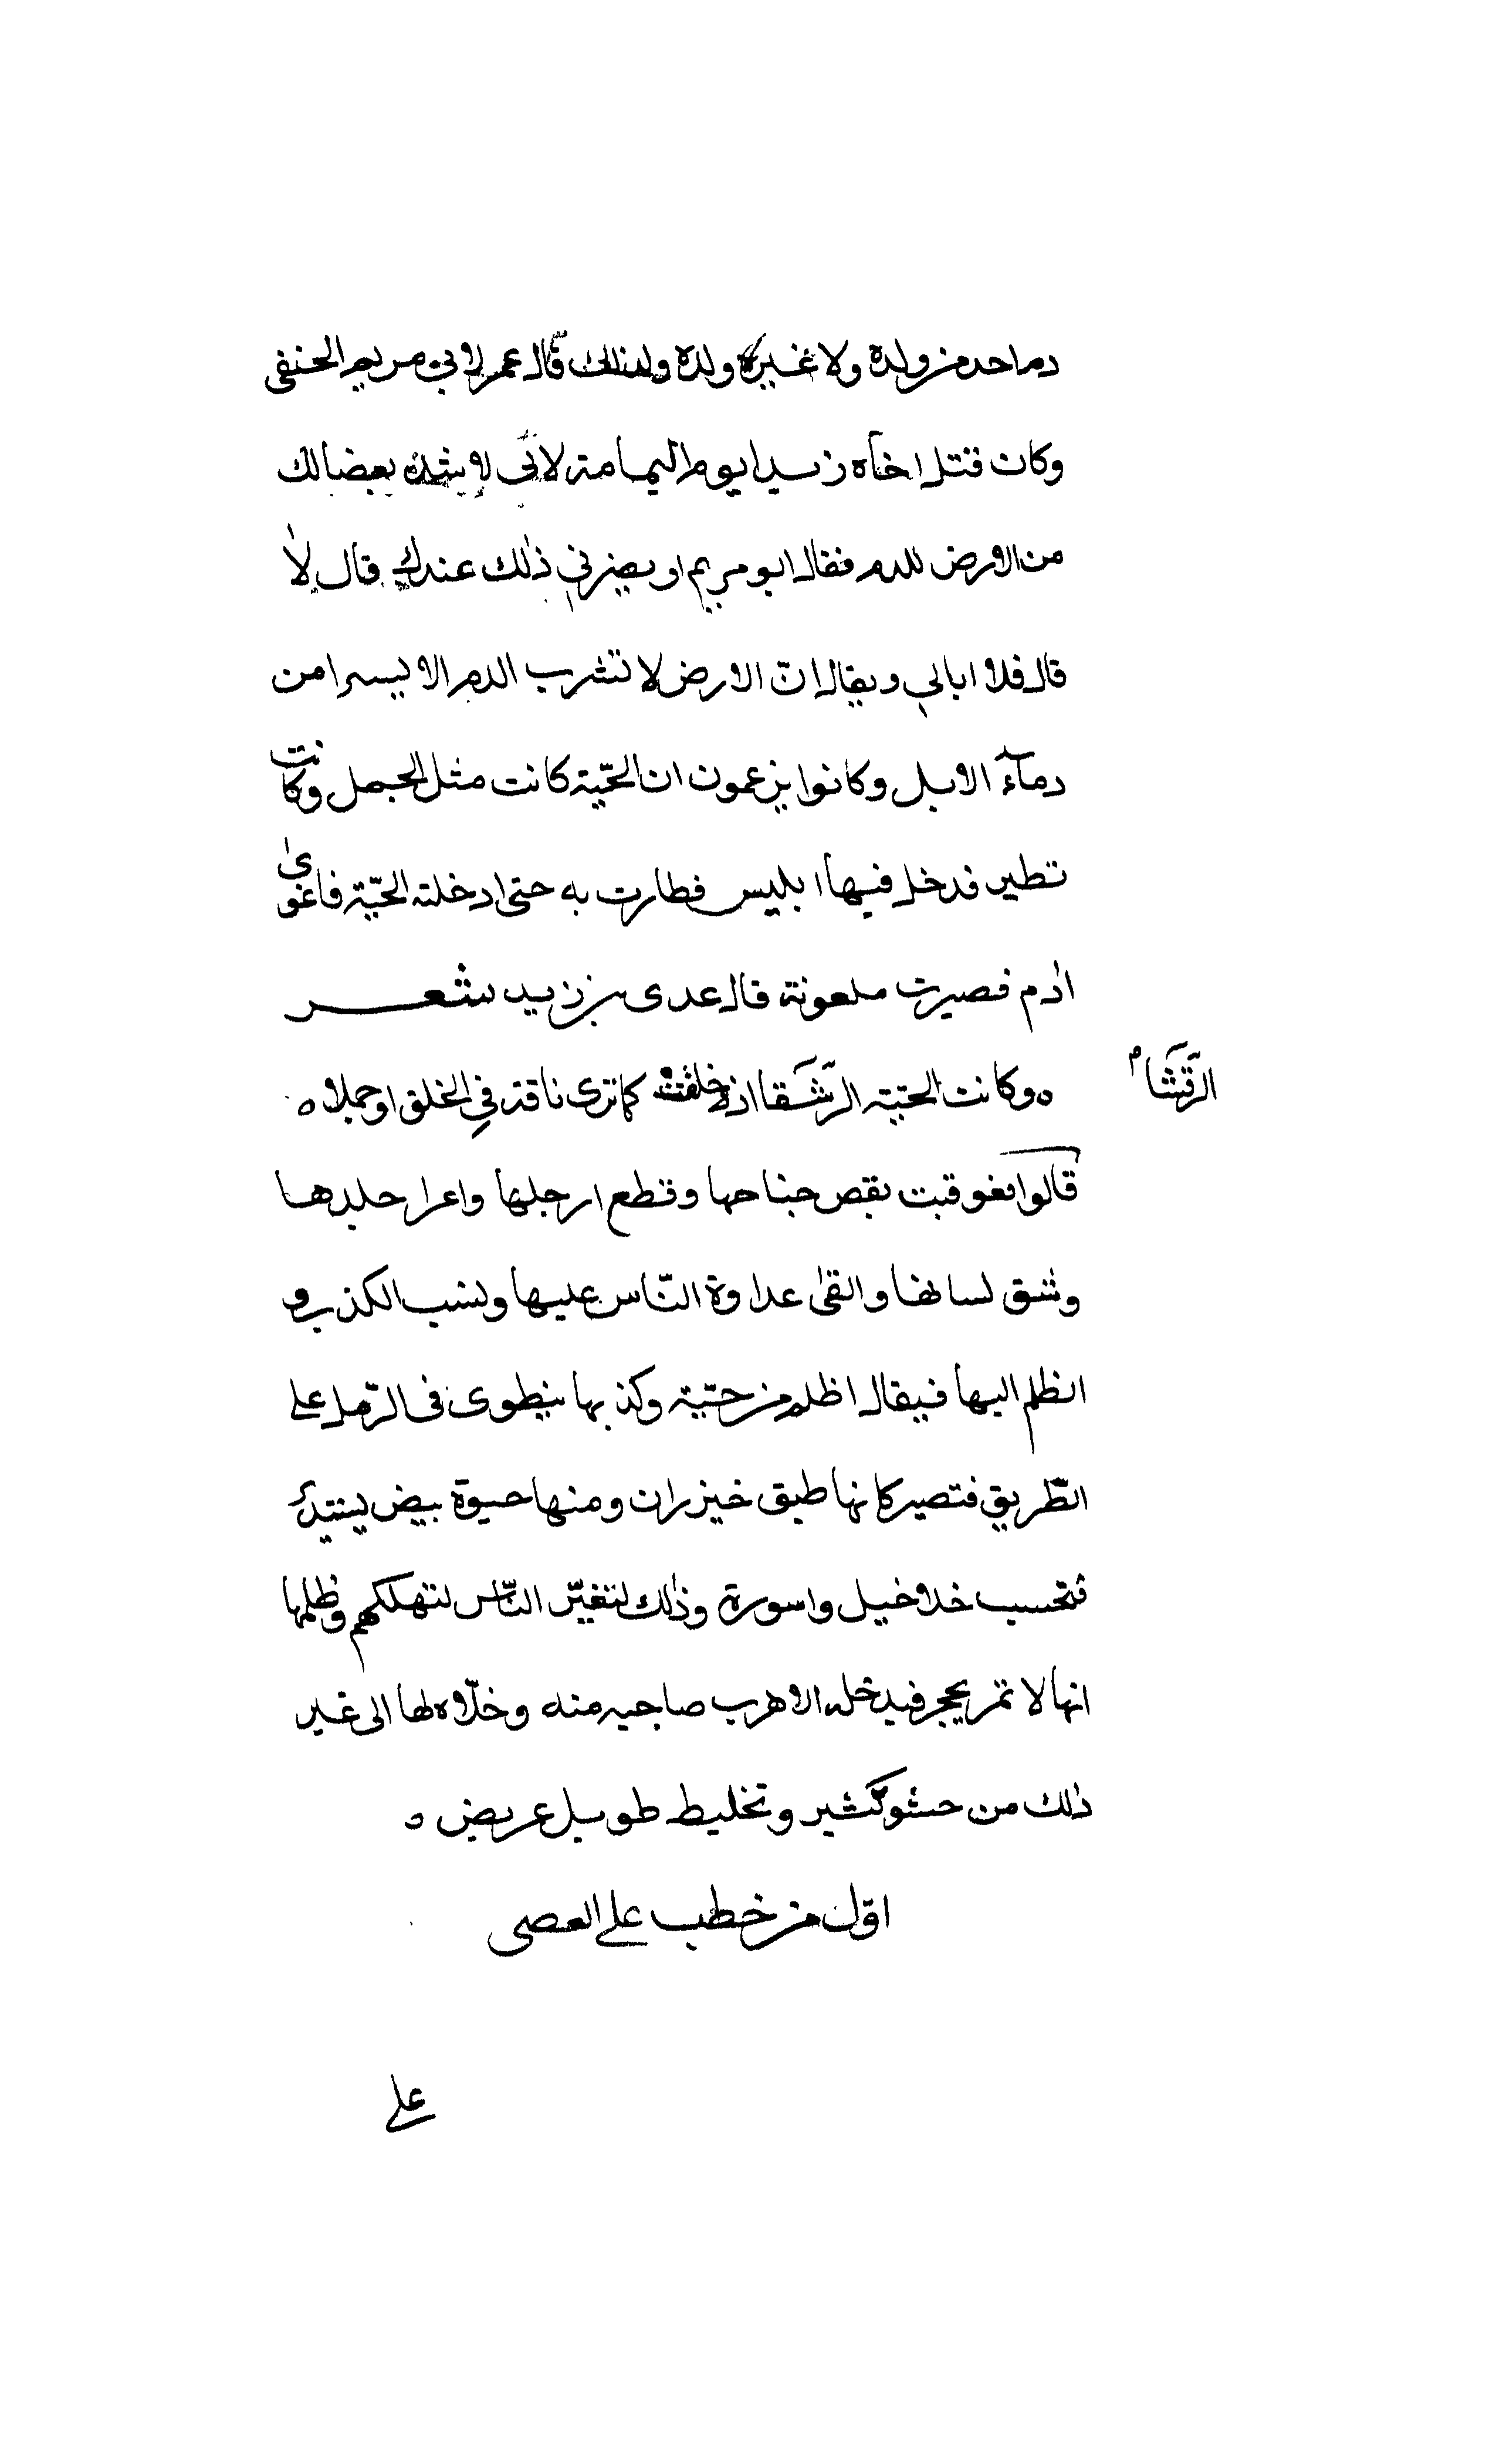 دم احد من ولده ولا غيره ولده ولذلك قال عمر لابي مريم الحنفي
وكان قتل اخاه زيدا يوم اليمامة لانّي لاشد بغضا لك
من الارض للدم فقال ابو مريم او يضرني ذلك عندك قال لا
قال فلا ابالي ويقال انّ الارض لا تشرب الدم الا يسيرا من
دمآء الابل وكانوا يزعمون ان الحيّة كانت مثل الجمل وكانت
تطير فدخل فيها ابليس فطارت به حتى ادخلته الحيّة فاغوى
ادم فصيرت ملعونة قال عدى بن زيد شعر
ه وكانت الحية الرّشَقا اذ خلقت كما ترى ناقة في الخلق او جملا ه
الرَّقْشَا م
قالوا فعوقبت بقص جناحها وقطع ارجلها واعرا جلدها
وشق لسانها والقى عداوة النّاس عليها ونسب الكذب و
الظلم اليها فيقال اظلم من حيّة وكذبها ينطوى في الرّمل على
الطّريق فتصير كانها طبق خيزران ومنها حيوة بيض يستدير
فتحسب خلاخيل واسورة وذلك لتغيّر النّاس لتهلكهم وظلمها
انها لا تمر بحجر فيدخله الا هرب صاحبه منه وخلّاه لها الى غير
ذلك من حشو كثير وتخليط طويل عريض ه
اوّل من خطب على العصى
على